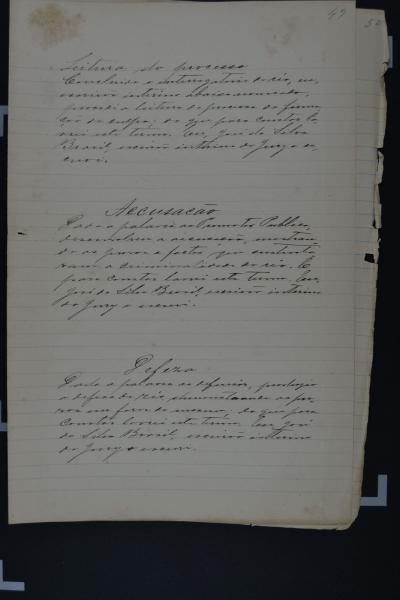 49
50
Leitura do processo
Concluido o interrogatorio do réo, eu,
escrivão interino abaixo nomeado,
procedi a leitura do processo da forma-
ção da culpa; do que para constar la-
vrei este termo. Eu, José da Silva
Brasil, escrivão interino do Jury o es-
crevi.
Accusação
Dada a palavra ao Promotor Publico,
desenvolveu a accusação, mostran-
do as provas e factos, que
a criminalidade do réo. E
para constar lavrei este termo. Eu,
José da Silva Brasil, escrivão interino
do Jury o escrevi.
Defeza
Dada a palavra ao defensor, produzio
a defeza do réo, as pro-
vas em favor do mesmo: do que para
constar lavrei este termo. Eu José
da Silva Brasil, escrivão interino
do Jury o escrevi.